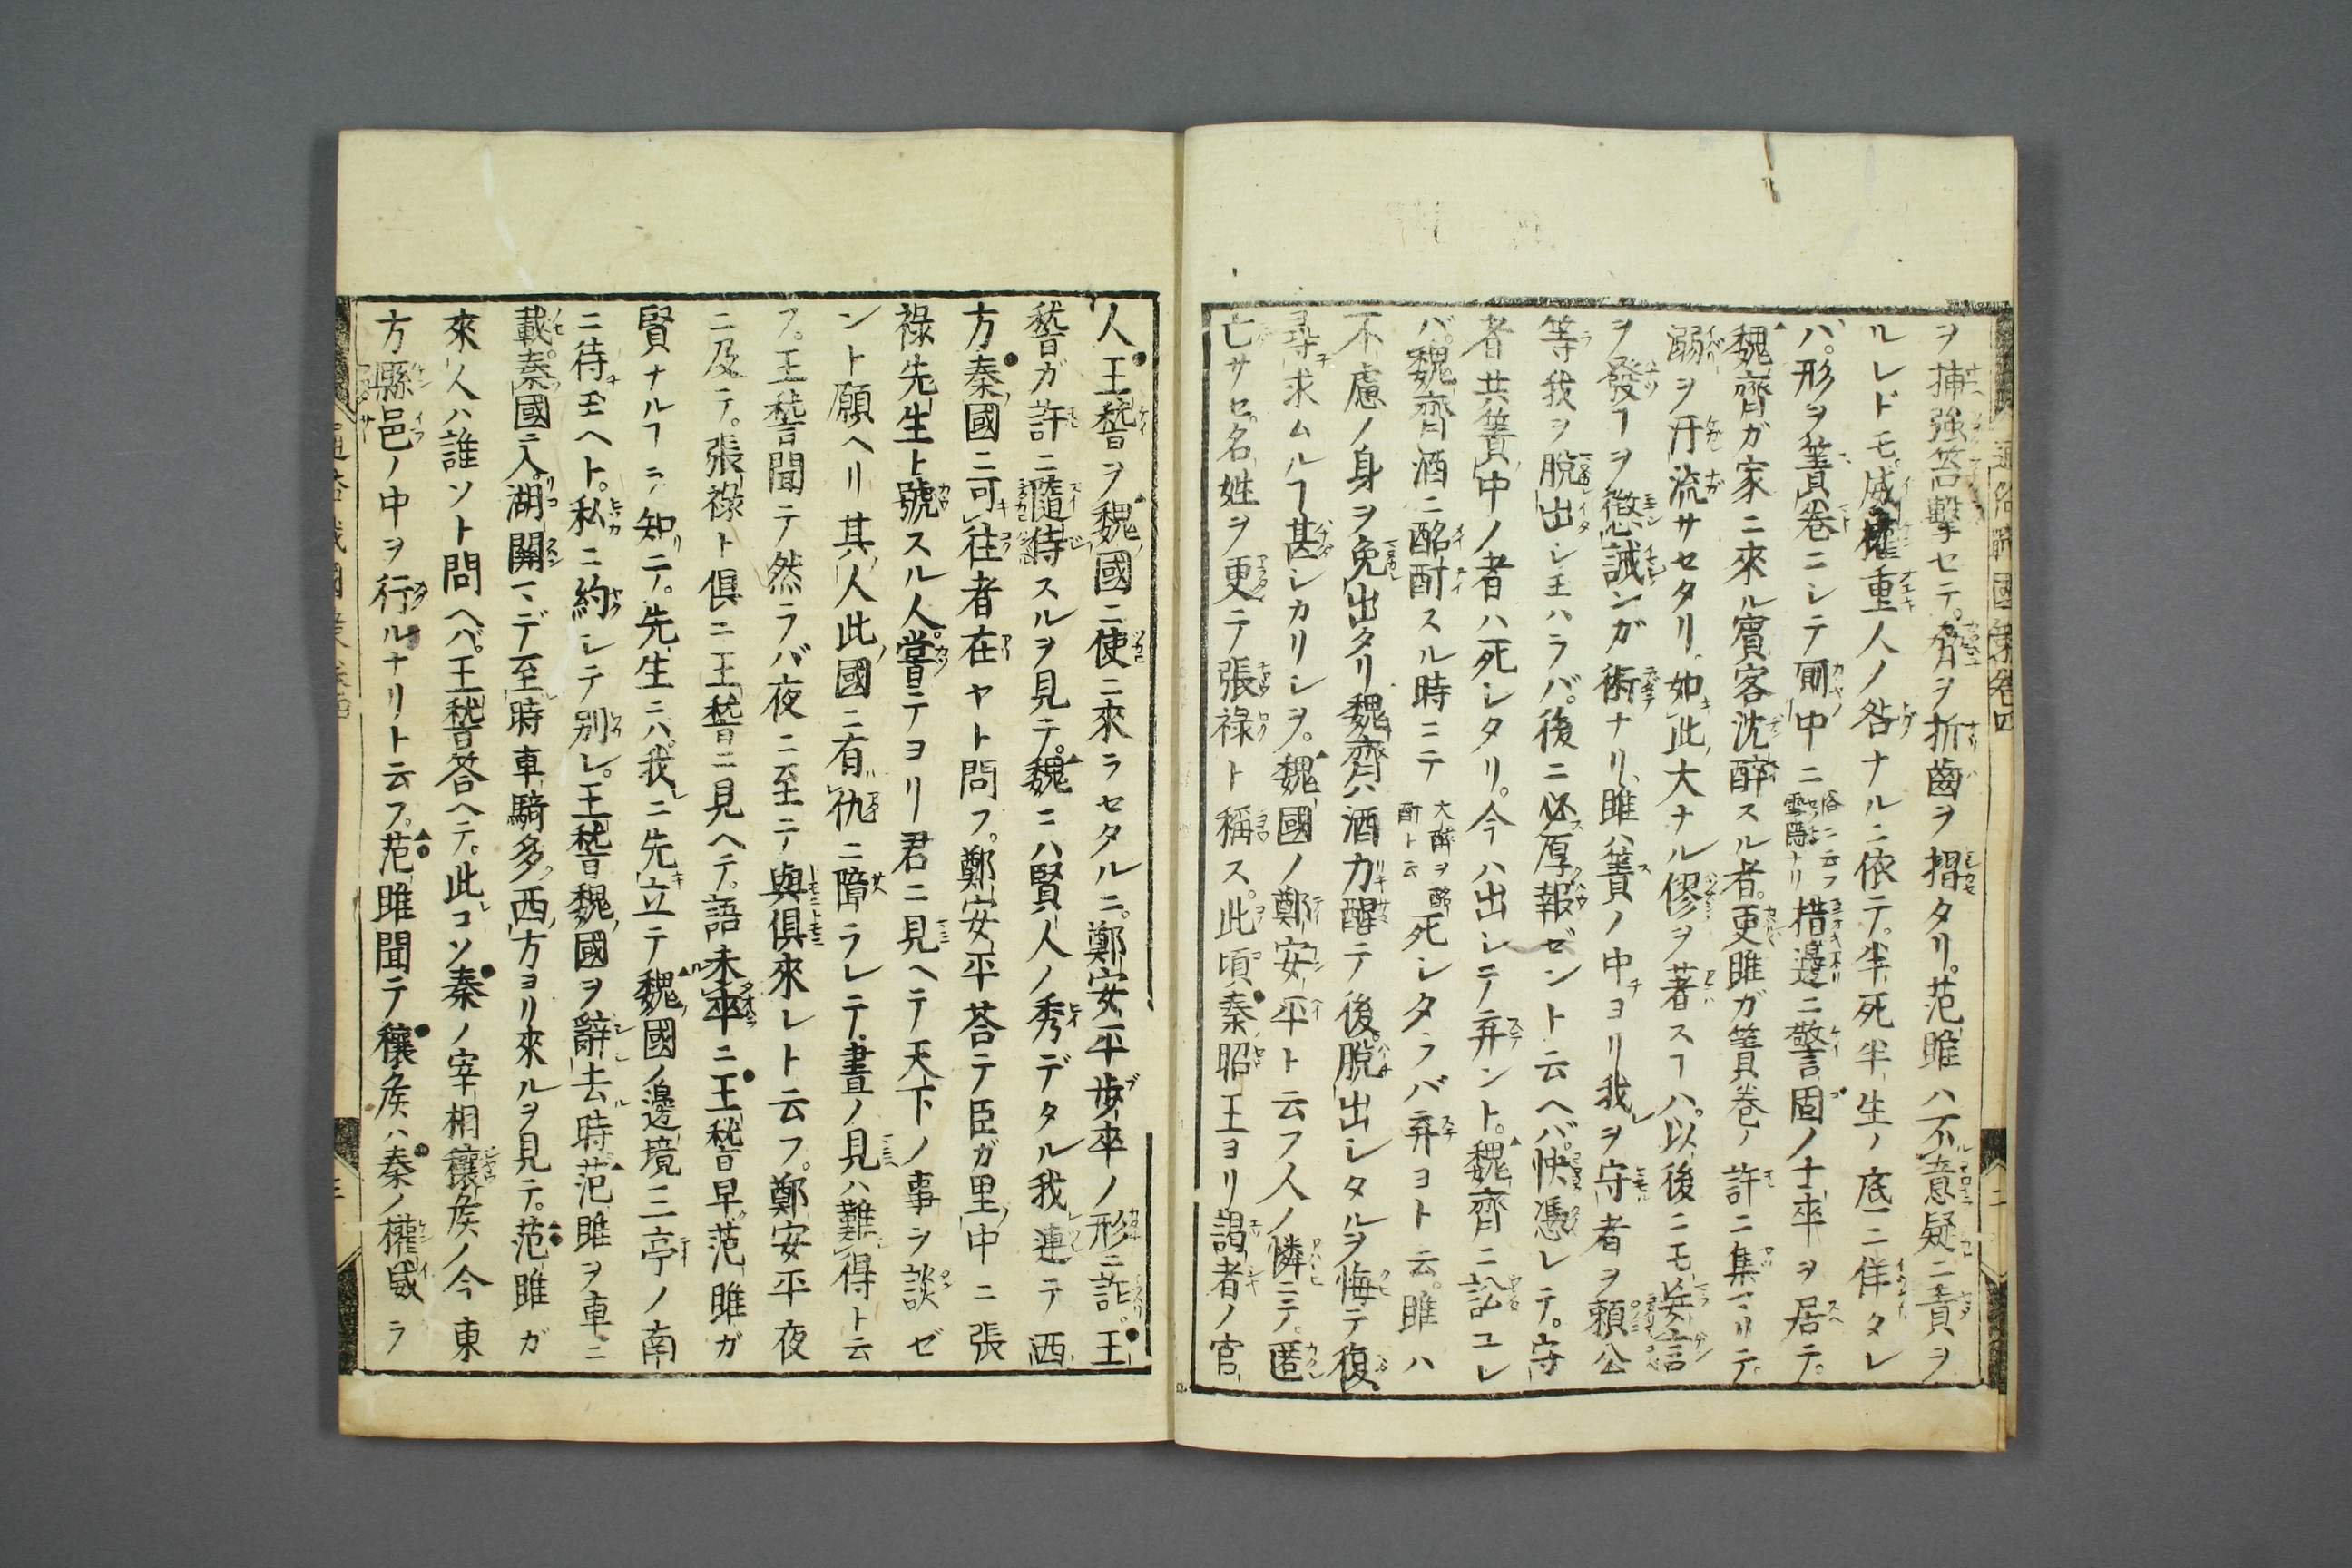 ヲ捕強笞撃セテ。脅ヲ折齒ヲ摺タリ。范雎ハ不意疑ニ責ヲ
ルレドモ。威權重人ノ咎ナルニ依テ。半死半生ノ底ニ佯タレ
ハ。形ヲ簀卷ニシテ厠中ニ俗ニ云フ雪隱ナリ措邊ニ警固ノ士卒ヲ居テ。
魏齊ガ家ニ來ル賓客沈醉スル者。更雎ガ簀卷ノ許ニ集マリテ。
溺ヲ汙流サセタリ。如此大ナル僇ヲ著スヿハ。以後ニモ妄言
ヲ發ヿヲ懲誡ンガ術ナリ。雎ハ簀ノ中ヨリ我ヲ守者ヲ頼公
等我ヲ脱出シ玉ハラバ。後ニ必厚報ゼント云ヘバ。快憑レテ。守
者共簀中ノ者ハ死シタリ。今ハ出シテ弃ント。魏齊ニ訟ユレ
バ。魏齊酒ニ酩酊スル時ニテ大醉ヲ酩酊ト云死シタラバ弃ヨト云。雎ハ
不慮ノ身ヲ免出タリ魏齊ハ酒力醒テ後。脱出シタルヲ悔テ復
尋求ムルヿ甚シカリシヲ。魏國ノ鄭安平ト云フ人ノ憐ニテ。匿
亡サセ。名姓ヲ更テ張祿ト稱ス。此頃秦昭王ヨリ謁者ノ官
人王稽ヲ魏國ニ使ニ來ラセタルニ。鄭安平歩卒ノ形ニ詐王
稽ガ許ニ隨侍スルヲ見テ。魏ニハ賢人ノ秀デタル我連テ西
方秦國ニ可往者在ヤト問フ。鄭安平荅テ臣ガ里中ニ張
祿先生ト號スル人嘗テヨリ君ニ見ヘテ天下ノ事ヲ談ゼ
ント願ヘリ其人此國ニ有仇ニ障ラレテ。晝ノ見ハ難得ト云
フ。王稽聞テ然ラバ夜ニ至テ與俱來レト云フ。鄭安平夜
ニ及テ。張祿ト俱ニ王稽ニ見ヘテ。語未卒ニ王稽早范雎ガ
賢ナルヿヲ知ニ。先生ニハ我ニ先立テ魏國ノ邊境三亭ノ南
ニ待玉ヘト。私ニ約シテ別レ。王稽魏國ヲ辭去時。范雎ヲ車ニ
載。秦國ニ入。湖關マデ至時車騎多西方ヨリ來ルヲ見テ。范雎ガ
來人ハ誰ソト問ヘバ。王稽荅ヘテ。此コソ秦ノ宰相穰矦ノ今東
方縣邑ノ中ヲ行ルナリト云フ。范雎聞テ穰矦ハ秦ノ權威ヲ